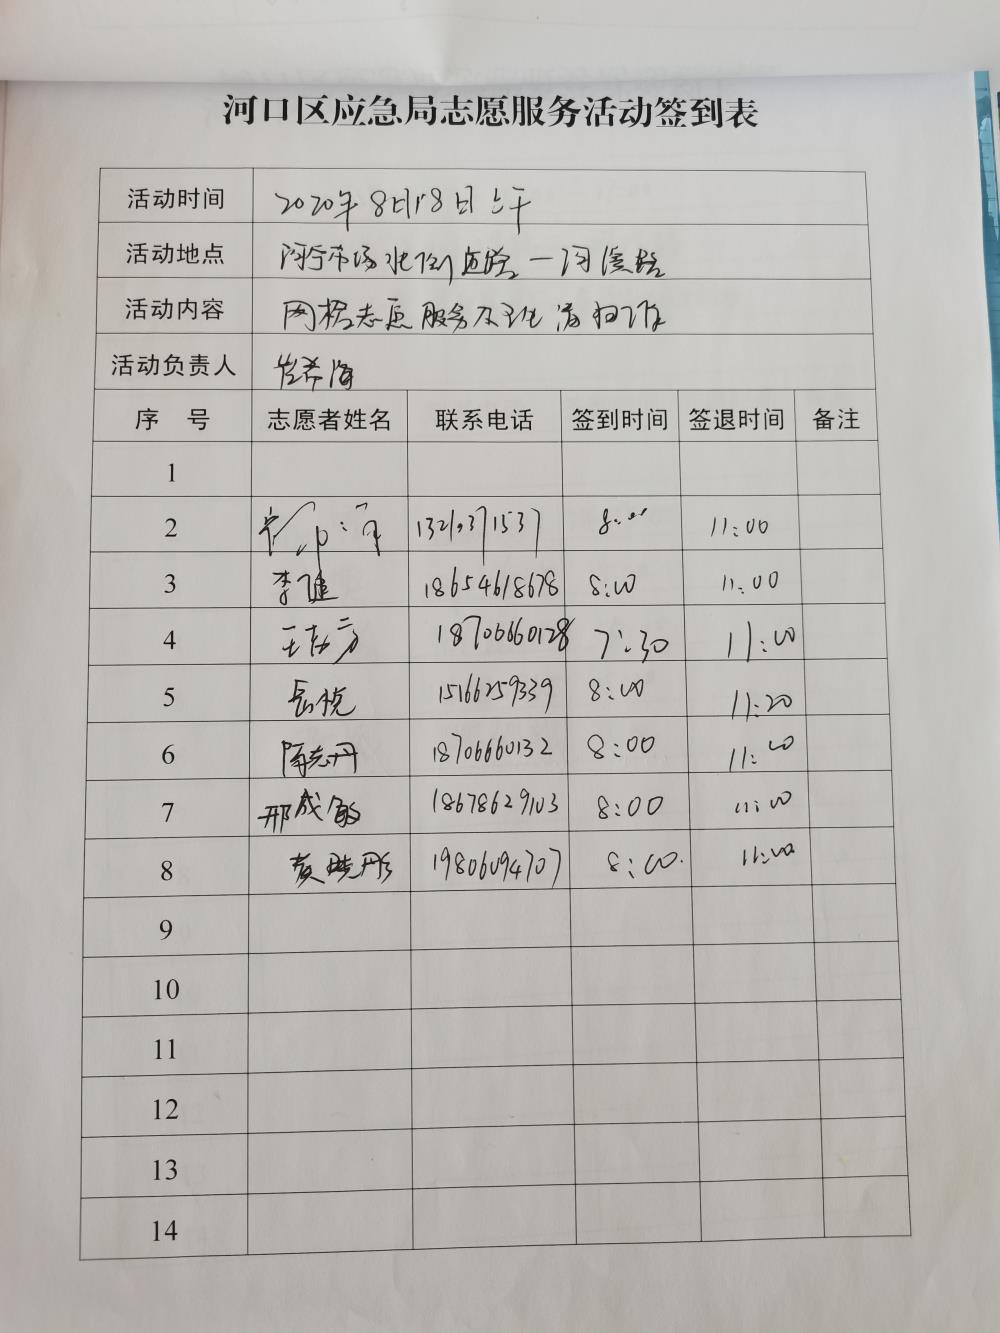 河口区应急局志愿服务活动签到表
活动时间 2020年8月18日上午
活动地点
活动内容 网格志愿服务及
活动负责人
序 号 志愿者姓名 联系电话 签到时间 签退时间 备注
1
2 8:00 11:00
3 李健 18654618678 8:00 11:00
4 18706660128 7:30 11:00
5 15166259339 8:00 11:20
6 18706660132 8:00 11:00
7 邢成敏 18678629103 8:00 11:00
8 19806094707 8:00 11:00
9
10
11
12
13
14